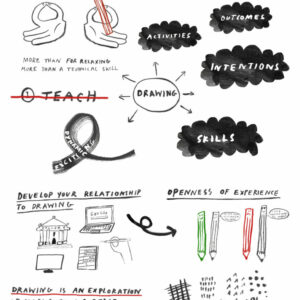 OUTCOMES
ACTIVITIES
MORE THAN FOR RELAXING
MORE THAN A TECHNICAL SKILL
INTENTIONS
① TEACH
DRAWING
SKILLS
DYNAMIC
EXCITING
DEVELOP YOUR RELATIONSHIP
TO DRAWING
OPENNESS OF EXPERIENCE
DRAWING IS AN EXPLORATION